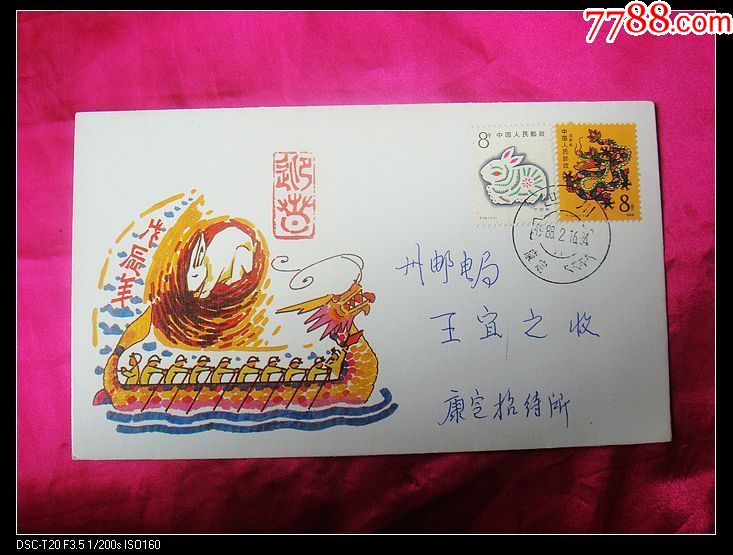 7788.com
迎春
戊辰年
8分
中国人民邮政
中国人民邮政
8分
1988
四川
1988.2.16
州邮电局
王宜之收
康定招待所
DSC-T20 F3.5 1/200s ISO160